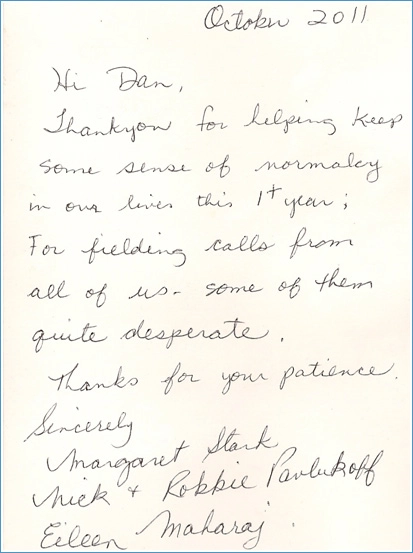 October 2011
Hi Dan,
Thankyou for helping keep
some sense of normalcy
in our lives this 1+ year;
For fielding calls from
all of us - some of them
quite desperate.
Thanks for your patience.
Sincerely
Margaret Stark
Nick + Robbie Pavlukoff
Eileen Maharaj.